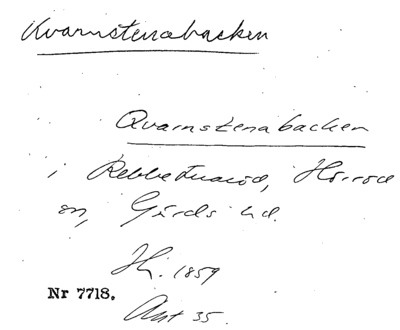 Kvarnstensbacken
Qvarnstensbacken
i Rebbetuaröd, Hörröd
sn, Gärds hd.
Jh. 1859
Nr 7718.
Ant 35.